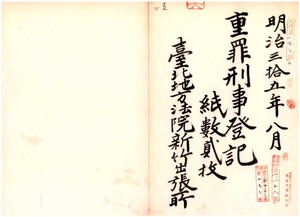 明治三拾五年八月
重罪刑事登記
紙數貳枚
臺北地方法院新竹出張所